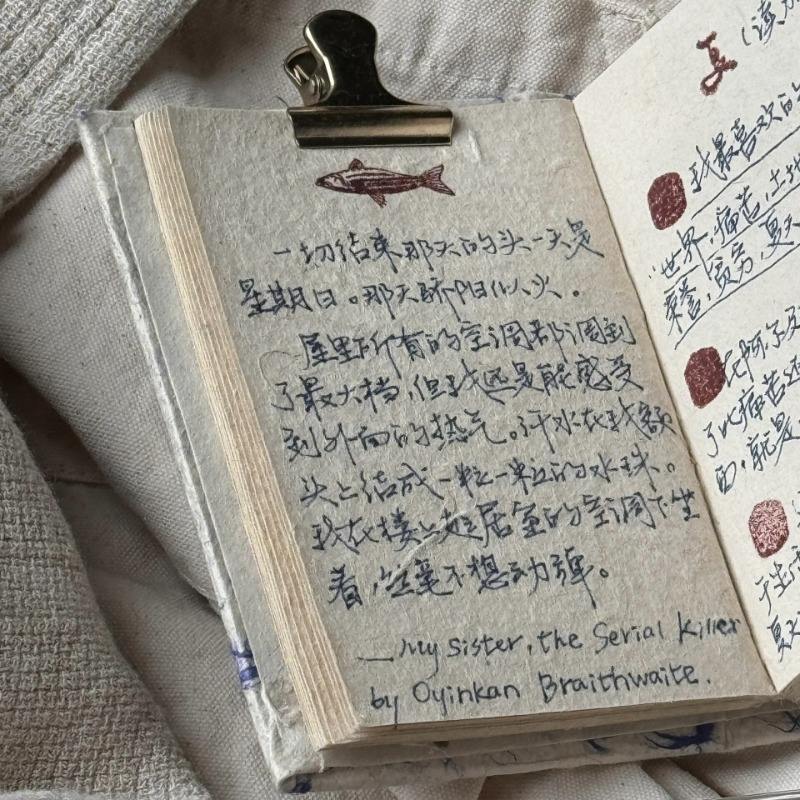 一切结束那天的头一天是
星期日。那天骄阳似火。
屋里所有的空调都调到
了最大档,但我还是能感受
到外面的热气。汗水在我额
头上结成一粒一粒的水珠。
我在楼上起居室的空调下坐
着,丝毫不想动弹。
—My sister, the Serial Killer
by Oyinkan Braithwaite.
夏(读
我最喜欢的
"世界,痛苦,土地
荣誉,贫穷,夏天
了比痛苦还
面,就是